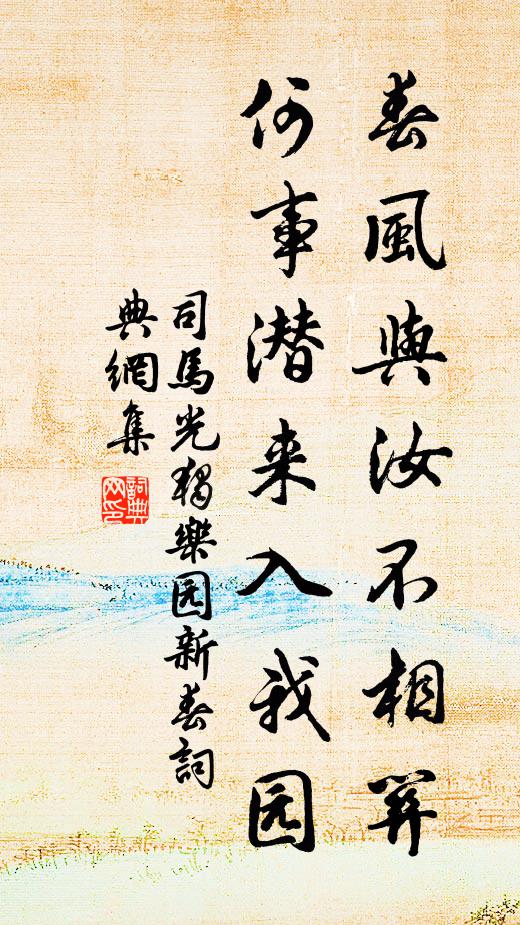 春風與汝不相關
何事潜来入我园
司馬光獨樂园新春詞
典網集
詞典网印